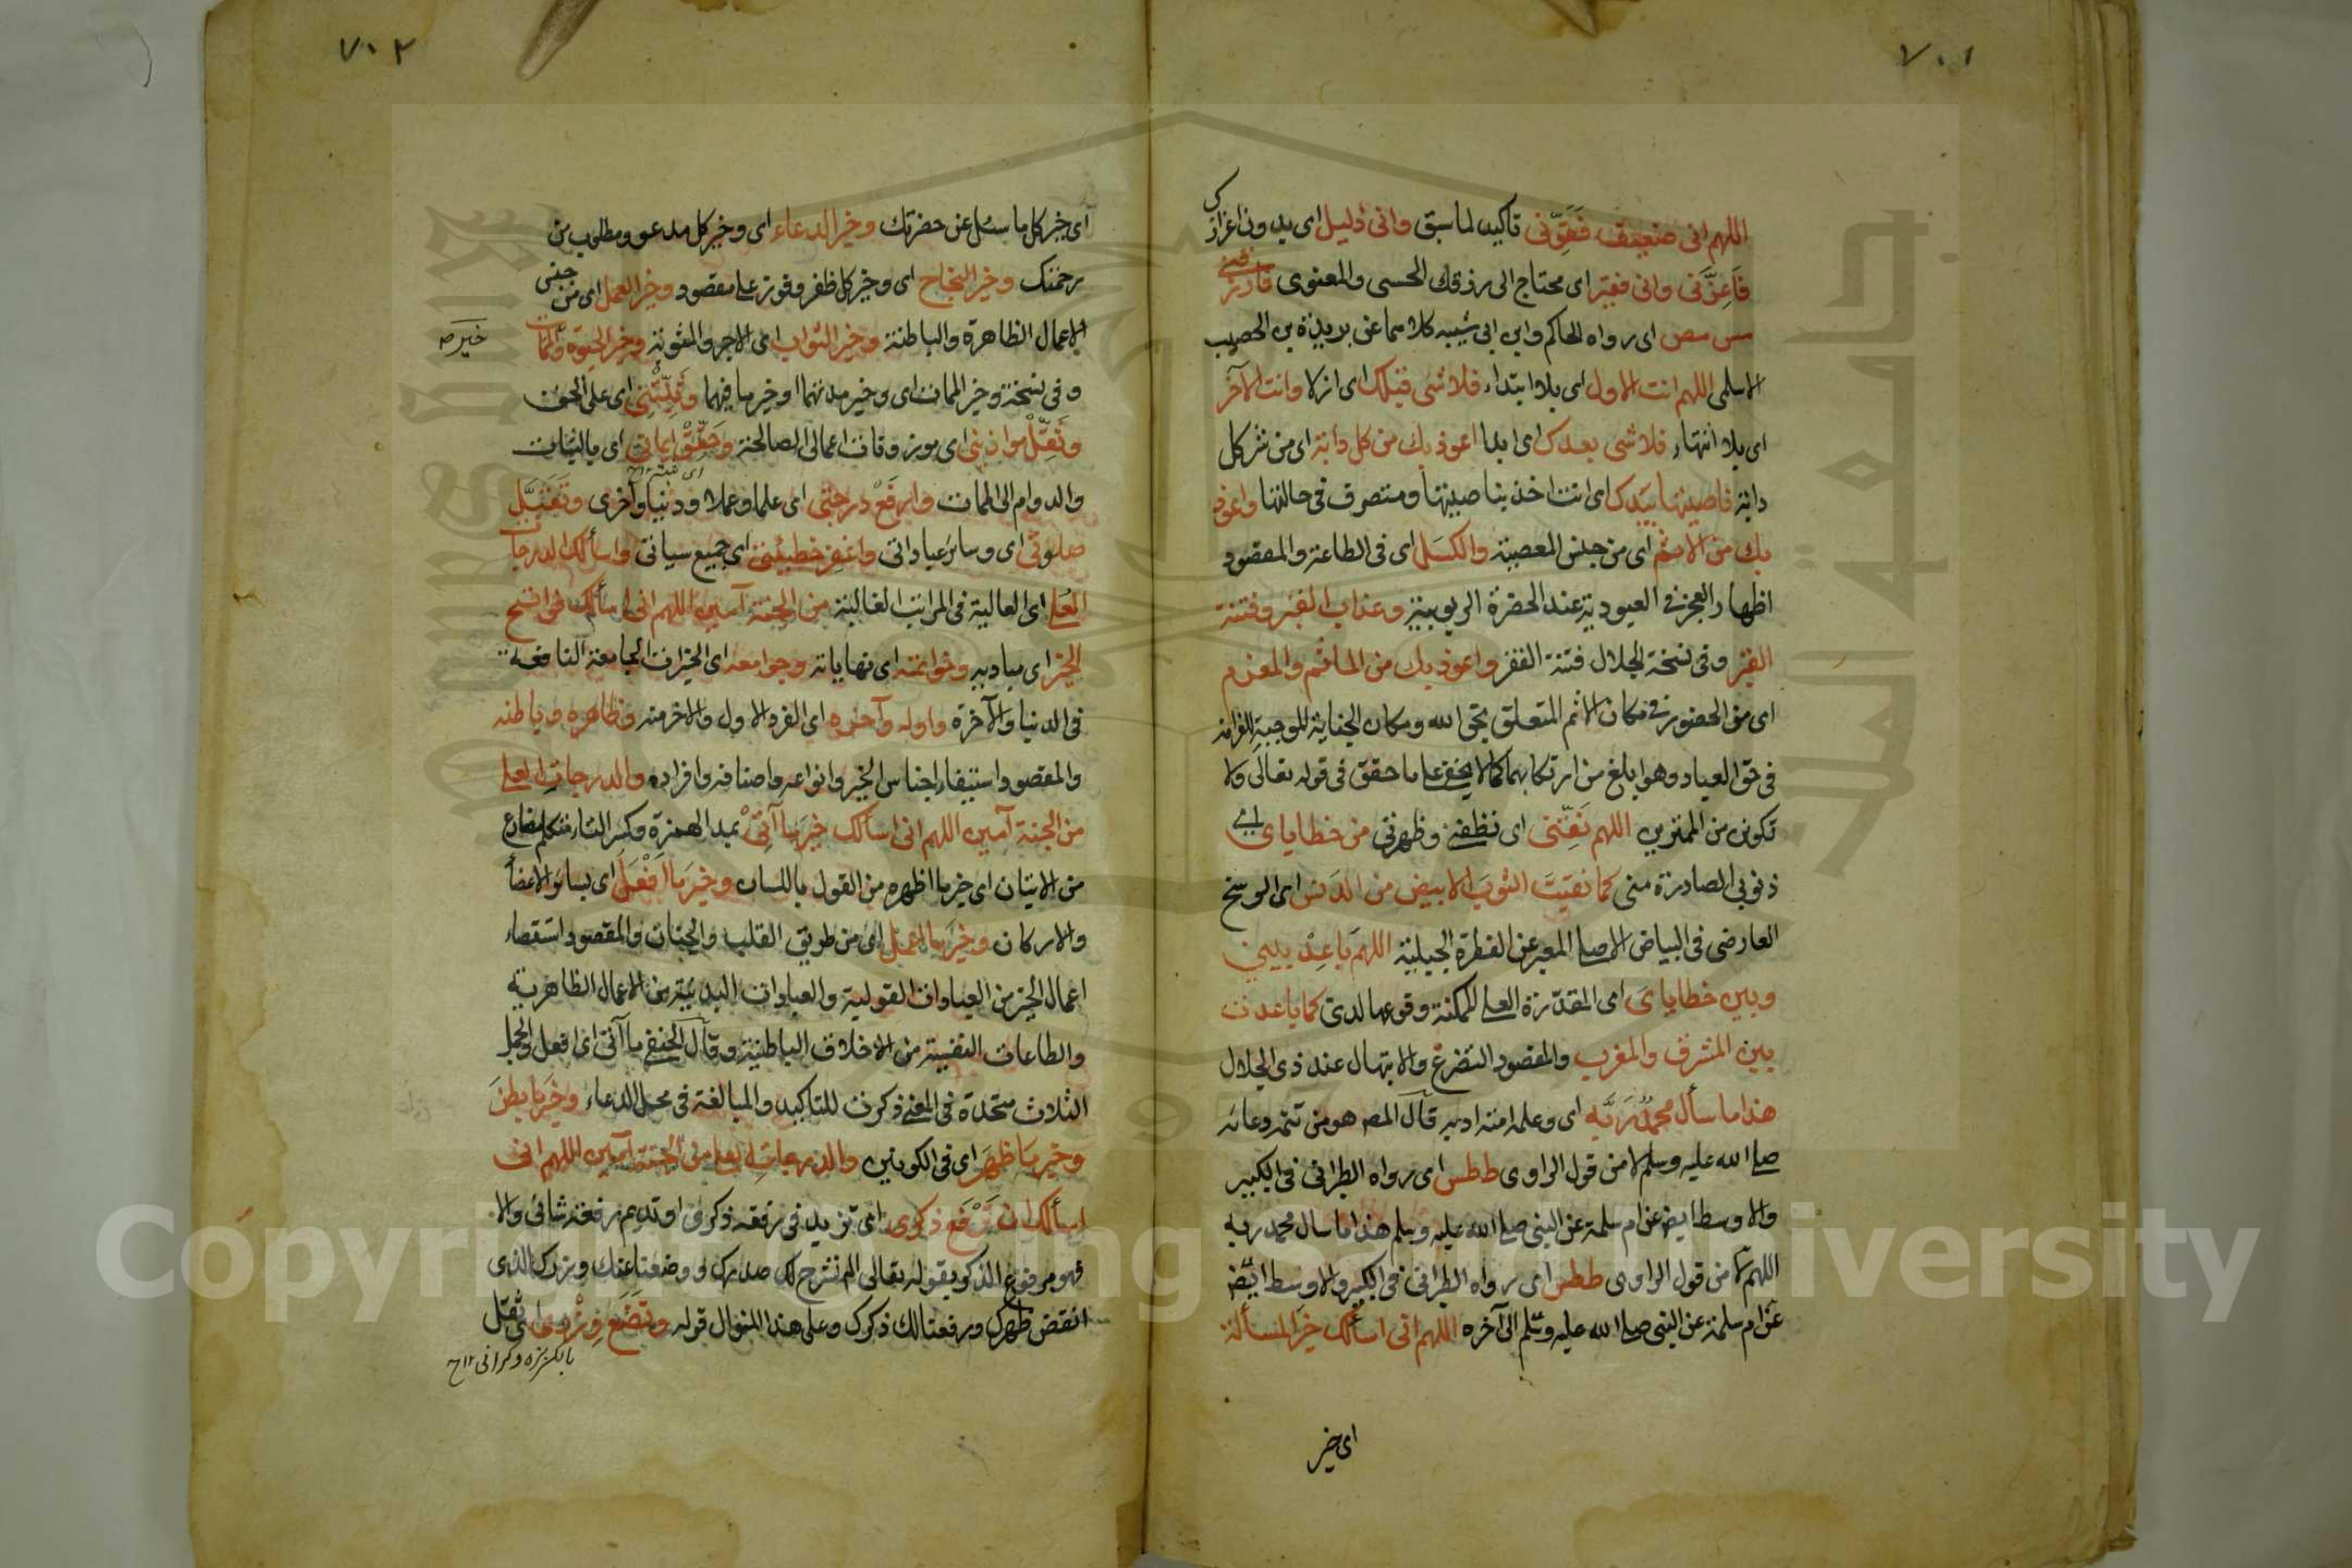 ٧٠١
اللهم انى ضعيف فَقَوِّنى تاكيد لما سبق وانى ذليل اى بدون اعزازك
فَاَعِزَّنى وانى فقير اى محتاج الى رزقك الحسى والمعنوى فارزقنى
مس مص اى رواه الحاكم وابن ابى شيبه كلاهما عن بريدة بن الحصيب
الاسلمى اللهم انت الاول اى بلا ابتداء فلا شى قبلك اى ازلا وانت الآخر
اى بلا انتهاء فلا شى بعدك اى ابدا اعوذ بك من كل دابة اى من شر كل
دابة ناصيتها بيدك اى انت اخذ بناصيتها ومتصرف فى حالتها واعوذ
بك من الاثم اى من جنس المعصية والكسل اى فى الطاعة والمقصود
اظهار العجز فى العبودية عند الحضرة الربوبية وعذاب القبر وفتنة
القبر وفى نسخة الجلال فتنة الفقر واعوذ بك من الماثم والمغرم
اى من الحضور فى مكان الاثم المتعلق بحق الله ومكان الجناية الموجبة للغرامة
فى حق العباد وهو ابلغ من ارتكابهما كما لا يخفى على ما حقق فى قوله تعالى ولا
تكونن من الممترين اللهم نَقِّنى اى نظفنى وطهرنى من خطاياى اى
ذنوبى الصادرة منى كما نقيت الثوب الابيض من الدنس اى الوسخ
العارضى فى البياض الاصلى المعبر عن الفطرة الجبلية اللهم باعد بينى
وبين خطاياى اى المقدّرة العلى الممكنة وقوعها لدى كما باعدت
بين المشرق والمغرب والمقصود التضرع والابتهال عند ذى الجلال
هذا ما سأل محمدٌ ربَّه اى وعلمه امته ادبه قال المصـ هو من تتمه دعائه
صلى الله عليه وسلم لا من قول الراوى ططس اى رواه الطبرانى فى الكبير
والاوسط ايضـ عن ام سلمة عن النبى صلى الله عليه وسلم هذا ما سال محمد ربه
اللهم لا من قول الراوى ططس اى رواه الطبرانى فى الكبير والاوسط ايضـ
عن ام سلمة عن النبى صلى الله عليه وسلم الى آخره اللهم انى اسألك خير المسألة
اى خير
٧٠٢
اى خير كل ما سئل عن حضرتك وخير الدعاء اى وخير كل مدعو ومطلوب من
رحمتك وخير النجاح اى وخير كل ظفر وفوز على مقصود وخير العمل اى من جنس
الاعمال الظاهرة والباطنة وخير الثواب اى الاجر والمثوبة وخير الحيوة والممات
خير صـ
وفى نسخة وخير الممات اى وخير مدتهما او خير ما فيهما وثَبِّتْنى اى على الحق
وثَقِّل موازينى اى موزونات اعمالى الصالحة وحَقِّقْ ايمانى اى بالثبات
والدوام الى الممات وارفَعْ درجتى اى علما وعملا ودنيا وأخرى وتقبل
صلوتى اى وسائر عباداتى واغفر خطيئتى اى جميع سيأتى واسألك الدرجات
العلى اى العالية فى المراتب الغالية من الجنة آمين اللهم انى اسألك فواتح
الخير اى مباديه وخواتمه اى نهاياته وجوامعه اى الخيرات الجامعة النافعة
فى الدنيا والآخرة واوله وآخره اى الفرد الاول والاخر منه وظاهره وباطنه
والمقصود استيفاء اجناس الخير وانواعه واصنافه وافراده والدرجات العلى
من الجنة آمين اللهم انى اسألك خيرَ ما آتى بمد الهمزة وكسر التاء متكلم مضارع
من الاتيان اى خير ما اظهره من القول باللسان وخيرَ ما اَفْعَلُ اى بسائر الاعضأ
والاركان وخيرَ ما اعمل اى من طريق القلب والجنان والمقصود استقصاء
اعمال الخير من العبادات القولية والعبادات البدنية من الاعمال الظاهرية
والطاعات النفسية من الاخلاق الباطنية وقال الحنفى ما آتى اى افعل والجمل
الثلاث متحدة فى المعنى ذكرت للتاكيد والمبالغة فى محل الدعاء وخيرَ ما بطنَ
وخير ما ظهَرَ اى فى الكونين والدرجات العلى من الجنة آمين اللهم انى
اسألك ان تَرْفَع ذكرى اى تزيد فى رفعة ذكرى او تديم رفعة شانى والا
فهو مرفوع الذكر بقوله تعالى الم نشرح لك صدرك ووضعنا عنك وزرك الذى
انقض ظهرك ورفعنا لك ذكرك وعلى هذا المنوال قوله وتَضَع وِزْرى اى ثقل